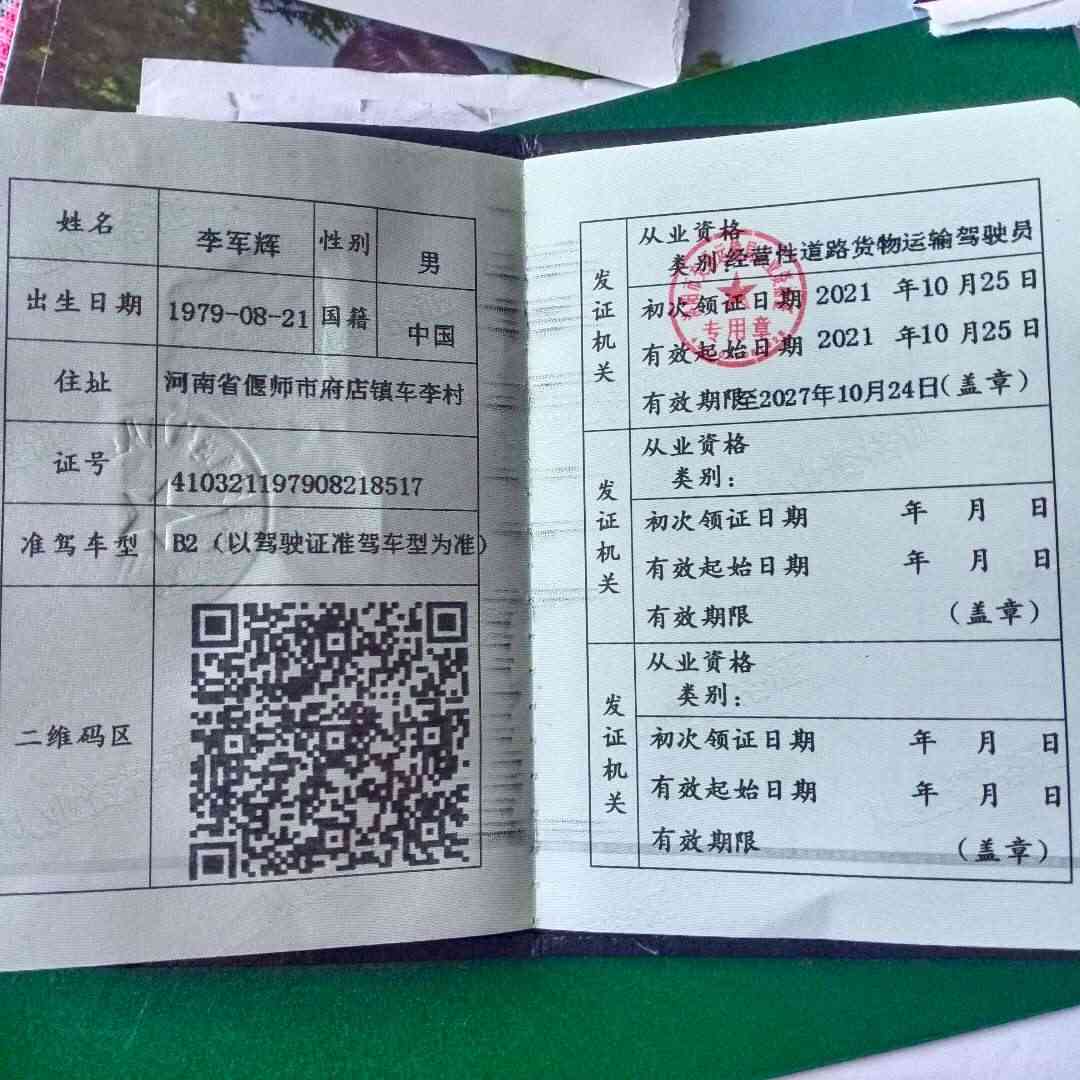 姓名 李军辉 性别 男
出生日期 1979-08-21 国籍 中国
住址 河南省偃师市府店镇车李村
证号 410321197908218517
准驾车型 B2（以驾驶证准驾车型为准）
二维码区
发证机关
从业资格
类别:经营性道路货物运输驾驶员
初次领证日期 2021 年10 月25 日
有效起始日期 2021 年10 月25 日
有效期限至2027年10月24日（盖章）
专用章
发证机关
从业资格
类别：
初次领证日期 年 月 日
有效起始日期 年 月 日
有效期限 （盖章）
发证机关
从业资格
类别：
初次领证日期 年 月 日
有效起始日期 年 月 日
有效期限 （盖章）